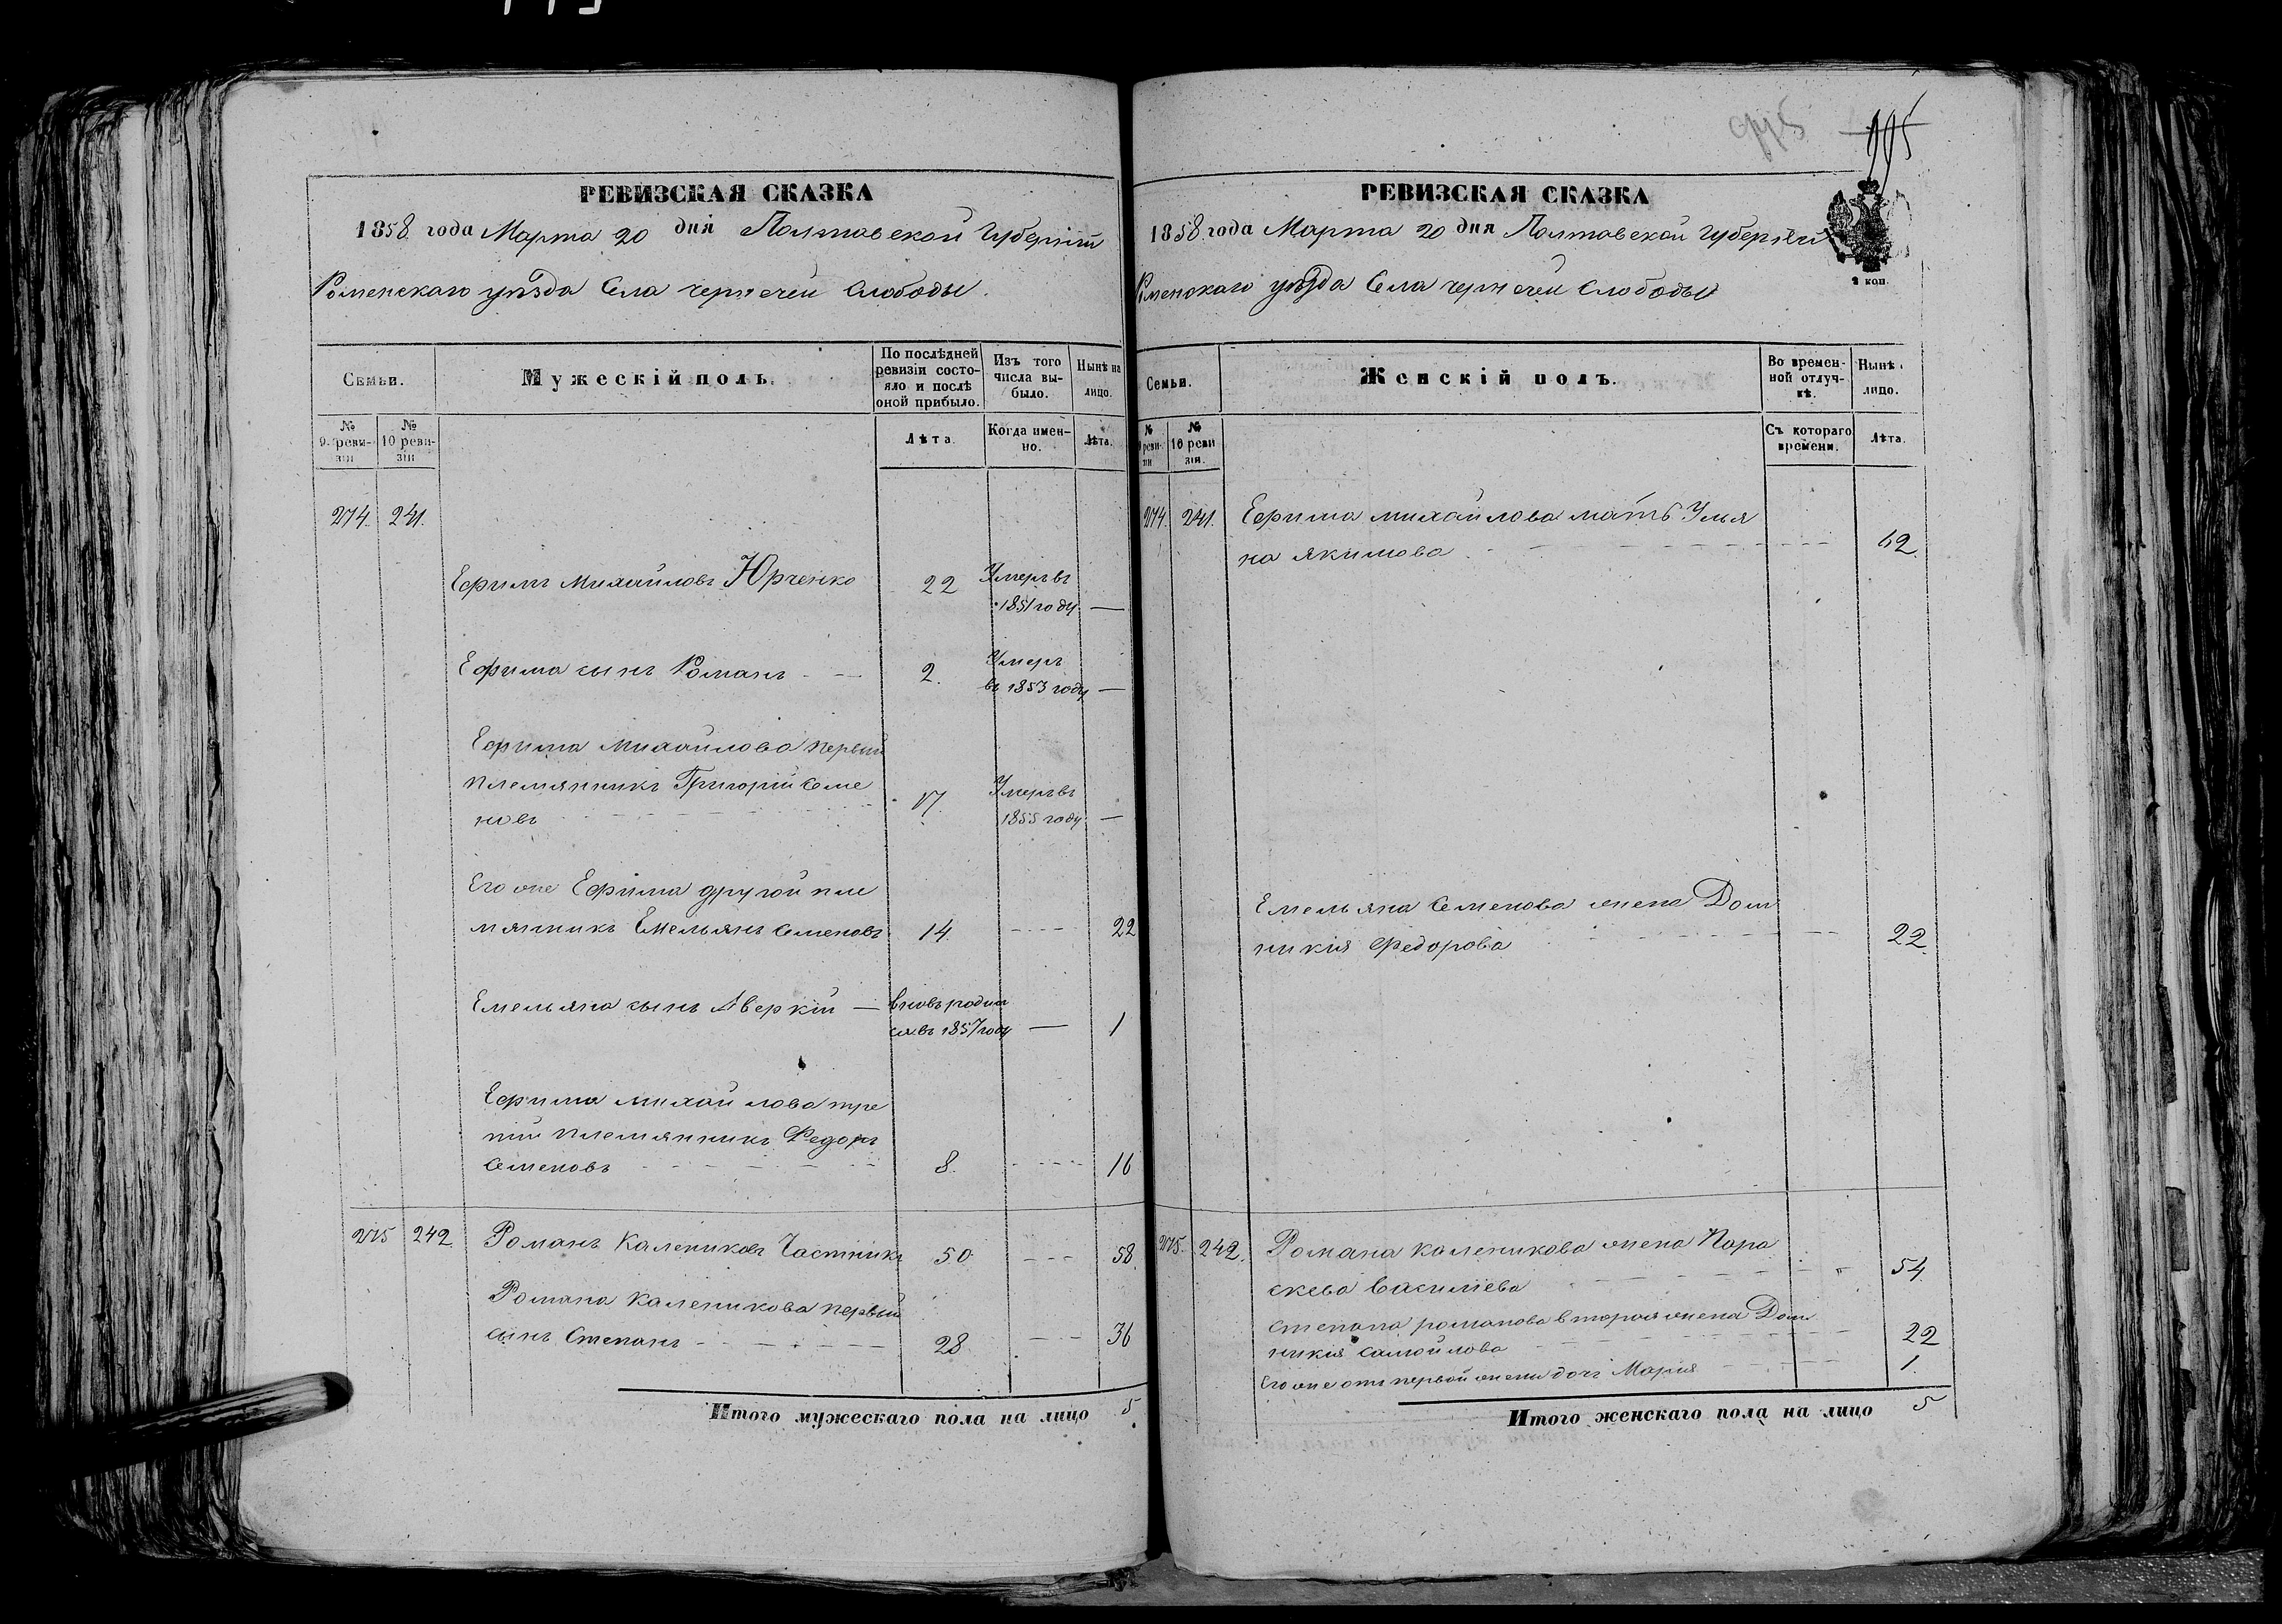 995
995
РЕВИЗСКАЯ СКАЗКА
1858 года Марта 20 дня Полтавской Губерніи
Роменскаго уѣзда Села чернечей Слободы.
Семьи.
Мужескій полъ.
По послѣдней ревизіи состояло и послѣ оной прибыло.
Изъ того числа выбыло.
Нынѣ на лицо.
№ 9. ревизіи
№ 10 ревизіи
Лѣта.
Когда именно.
Лѣта.
274. 241.
Ефимъ Михайловъ Юрченко 22 Умеръ въ
1851 году —
Ефима сынъ Романъ 2. Умеръ
въ 1853 году —
Ефима Михайлова первый
племянникъ Григорій Семе
новъ 17 Умеръ въ
1855 году —
Его же Ефима другой пле
мянникъ Емельянъ Семеновъ 14. 22
Емельяна сынъ Аверкій — вновь родил
ся въ 1857 году — 1
Ефима михайлова тре
тій племянникъ Федоръ
Семеновъ 8. 16
275 242. Романъ Калениковъ Частникъ 50 58.
Романа Каленикова первый
сынъ Степанъ 28 36
Итого мужескаго пола на лицо 5
РЕВИЗСКАЯ СКАЗКА
1858. года Марта 20 дня Полтавской Губерніи
Роменскаго уѣзда Села чернечей Слободы
2 коп.
Семьи.
Женскій полъ.
Во временной отлучкѣ.
Нынѣ лицо.
№ ревизіи
№ 10 ревизія.
Съ котораго времени.
Лѣта.
274. 241. Ефима михайлова мать Улья
на якимова 62.
Емельяна Семенова жена Дом
никия Федорова 22.
275. 242. Романа каленикова жена Пара
скева Василіева 54.
Степана романова вторая жена Дом
никия самойлова 22
Его же отъ первой жены дочь Мария 1.
Итого женскаго пола на лицо 5